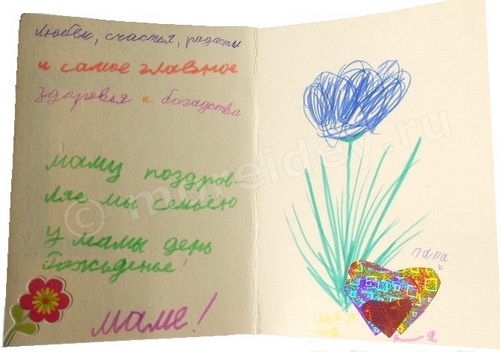 Любви, счастья, радасти
и самое главное
здоровья и богадства
маму поздров
ляе мы семьёю
У мамы день
Рожьденье!
маме!
папа
я
© mureidey.ru